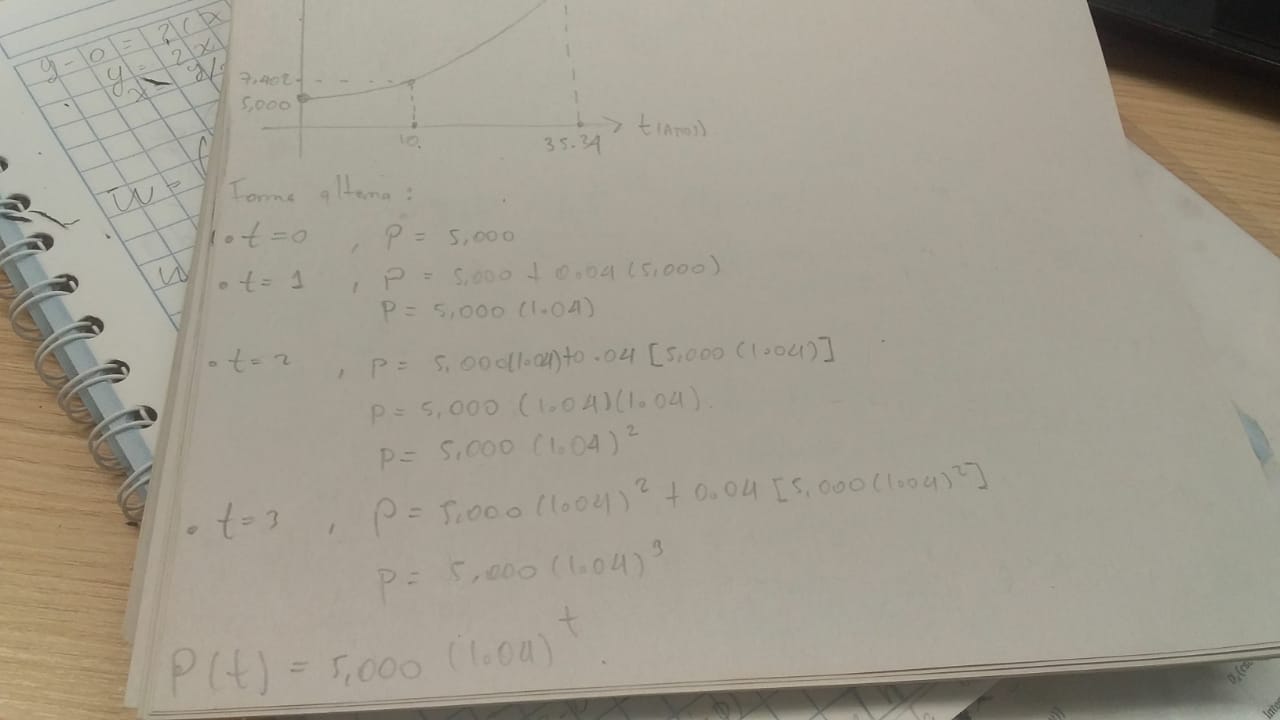 y-0 = 2(x
y = 2x
W =
7,402
5,000
10.
35.34
t (Años)
Forma alterna:
• t=0 , P = 5,000
• t= 1 , P = 5,000 + 0.04 (5,000)
P = 5,000 (1.04)
• t= 2 , P = 5,000(1.04)+0.04 [5,000 (1.04)]
P = 5,000 (1.04)(1.04).
P = 5,000 (1.04)²
• t=3 , P = 5,000 (1.04)² + 0.04 [5,000(1.04)²]
P = 5,000 (1.04)³
P(t) = 5,000 (1.04)ᵗ.